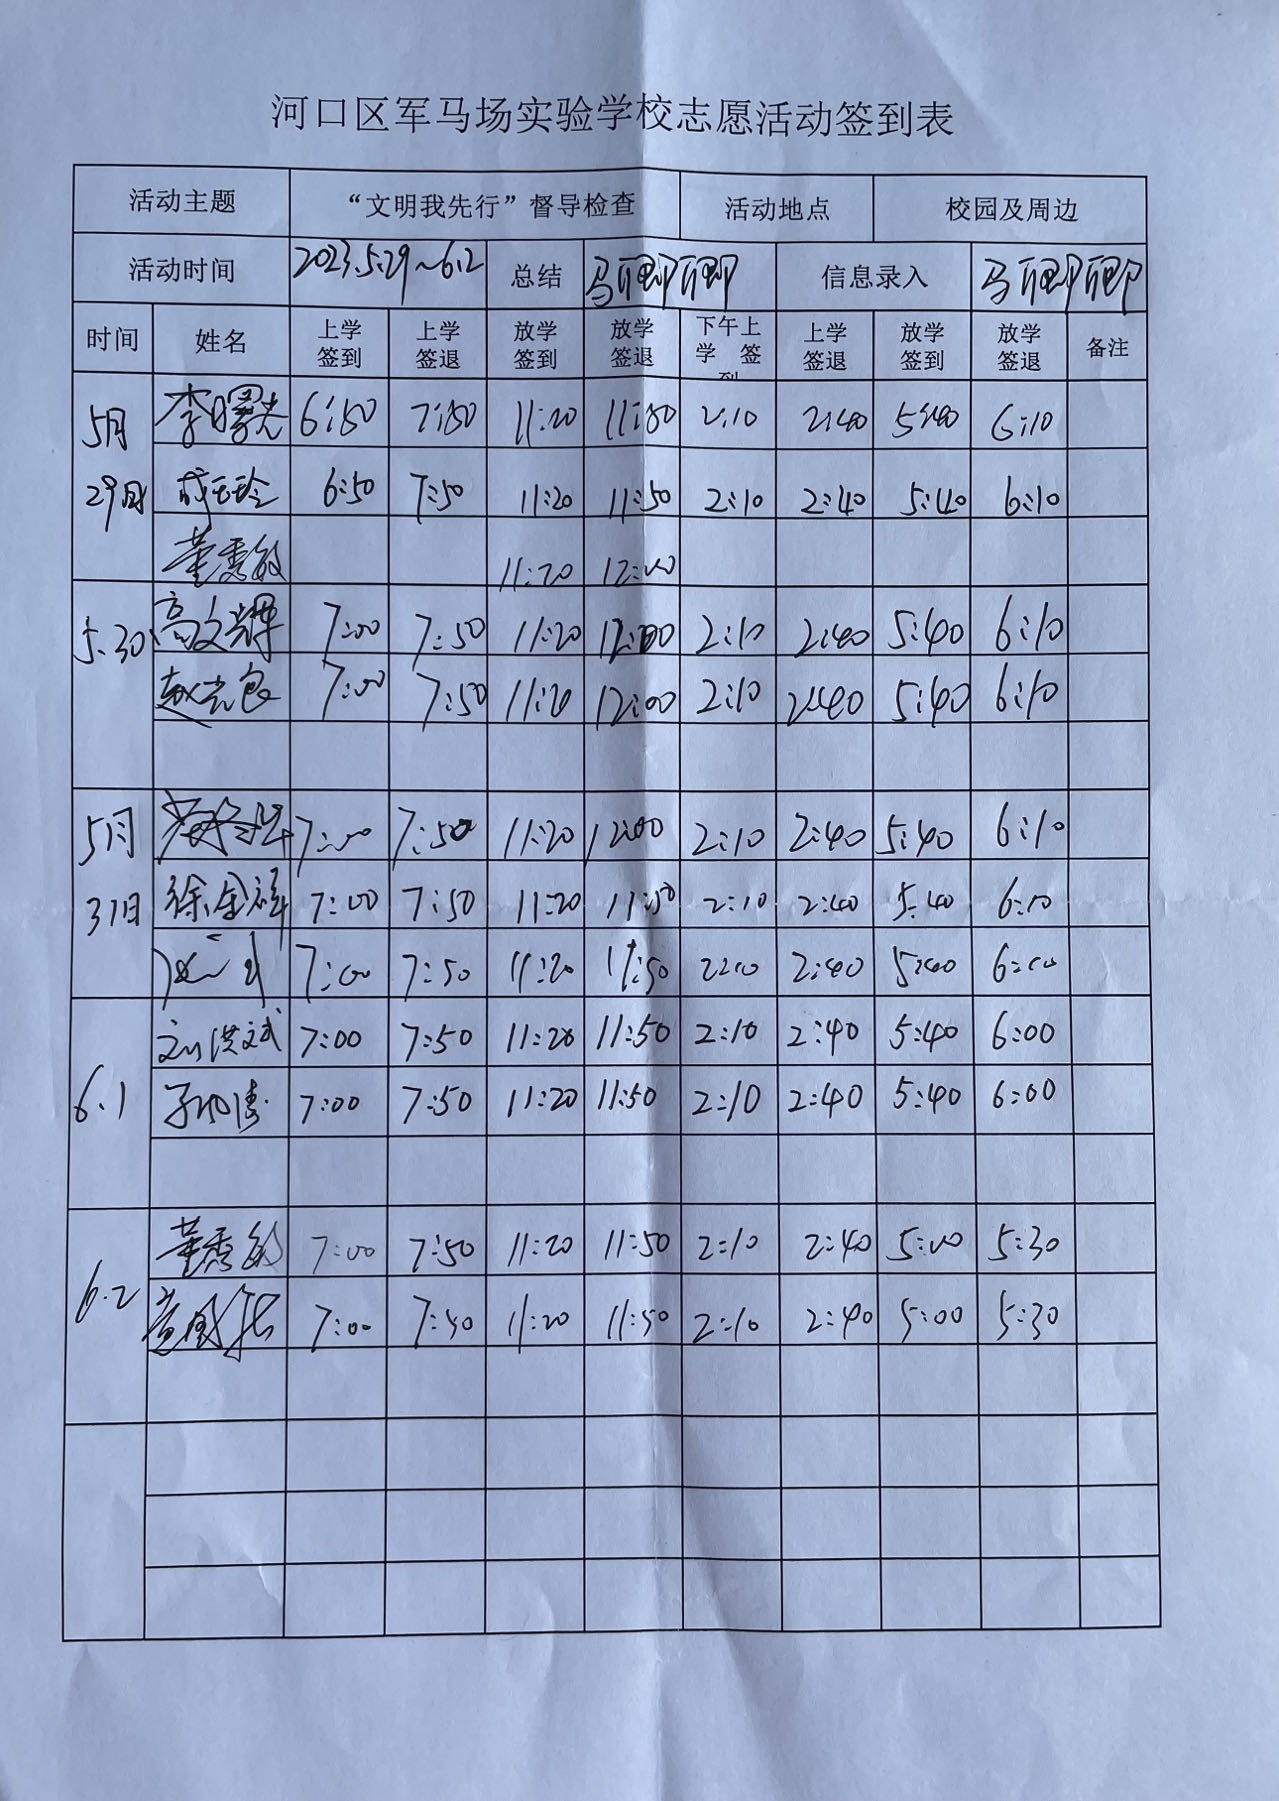 河口区军马场实验学校志愿活动签到表
活动主题 “文明我先行”督导检查 活动地点 校园及周边
活动时间 2023.5.29~6.2 总结 马 信息录入 马
时间 姓名 上学签到 上学签退 放学签到 放学签退 下午上学 签到 上学签退 放学签到 放学签退 备注
5月29日 李曙光 6:50 7:50 11:20 11:50 2:10 2:40 5:40 6:10
6:50 7:50 11:20 11:50 2:10 2:40 5:40 6:10
董秀敏 11:20 12:00
5.30 高文辉 7:00 7:50 11:20 12:00 2:10 2:40 5:40 6:10
赵光良 7:00 7:50 11:20 12:00 2:10 2:40 5:40 6:10
5月31日 7:00 7:50 11:20 12:00 2:10 2:40 5:40 6:10
徐金祥 7:00 7:50 11:20 11:50 2:10 2:40 5:40 6:10
7:00 7:50 11:20 11:50 2:10 2:40 5:40 6:00
6.1 刘洪斌 7:00 7:50 11:20 11:50 2:10 2:40 5:40 6:00
7:00 7:50 11:20 11:50 2:10 2:40 5:40 6:00
6.2 董秀敏 7:00 7:50 11:20 11:50 2:10 2:40 5:00 5:30
7:00 7:50 11:20 11:50 2:10 2:40 5:00 5:30